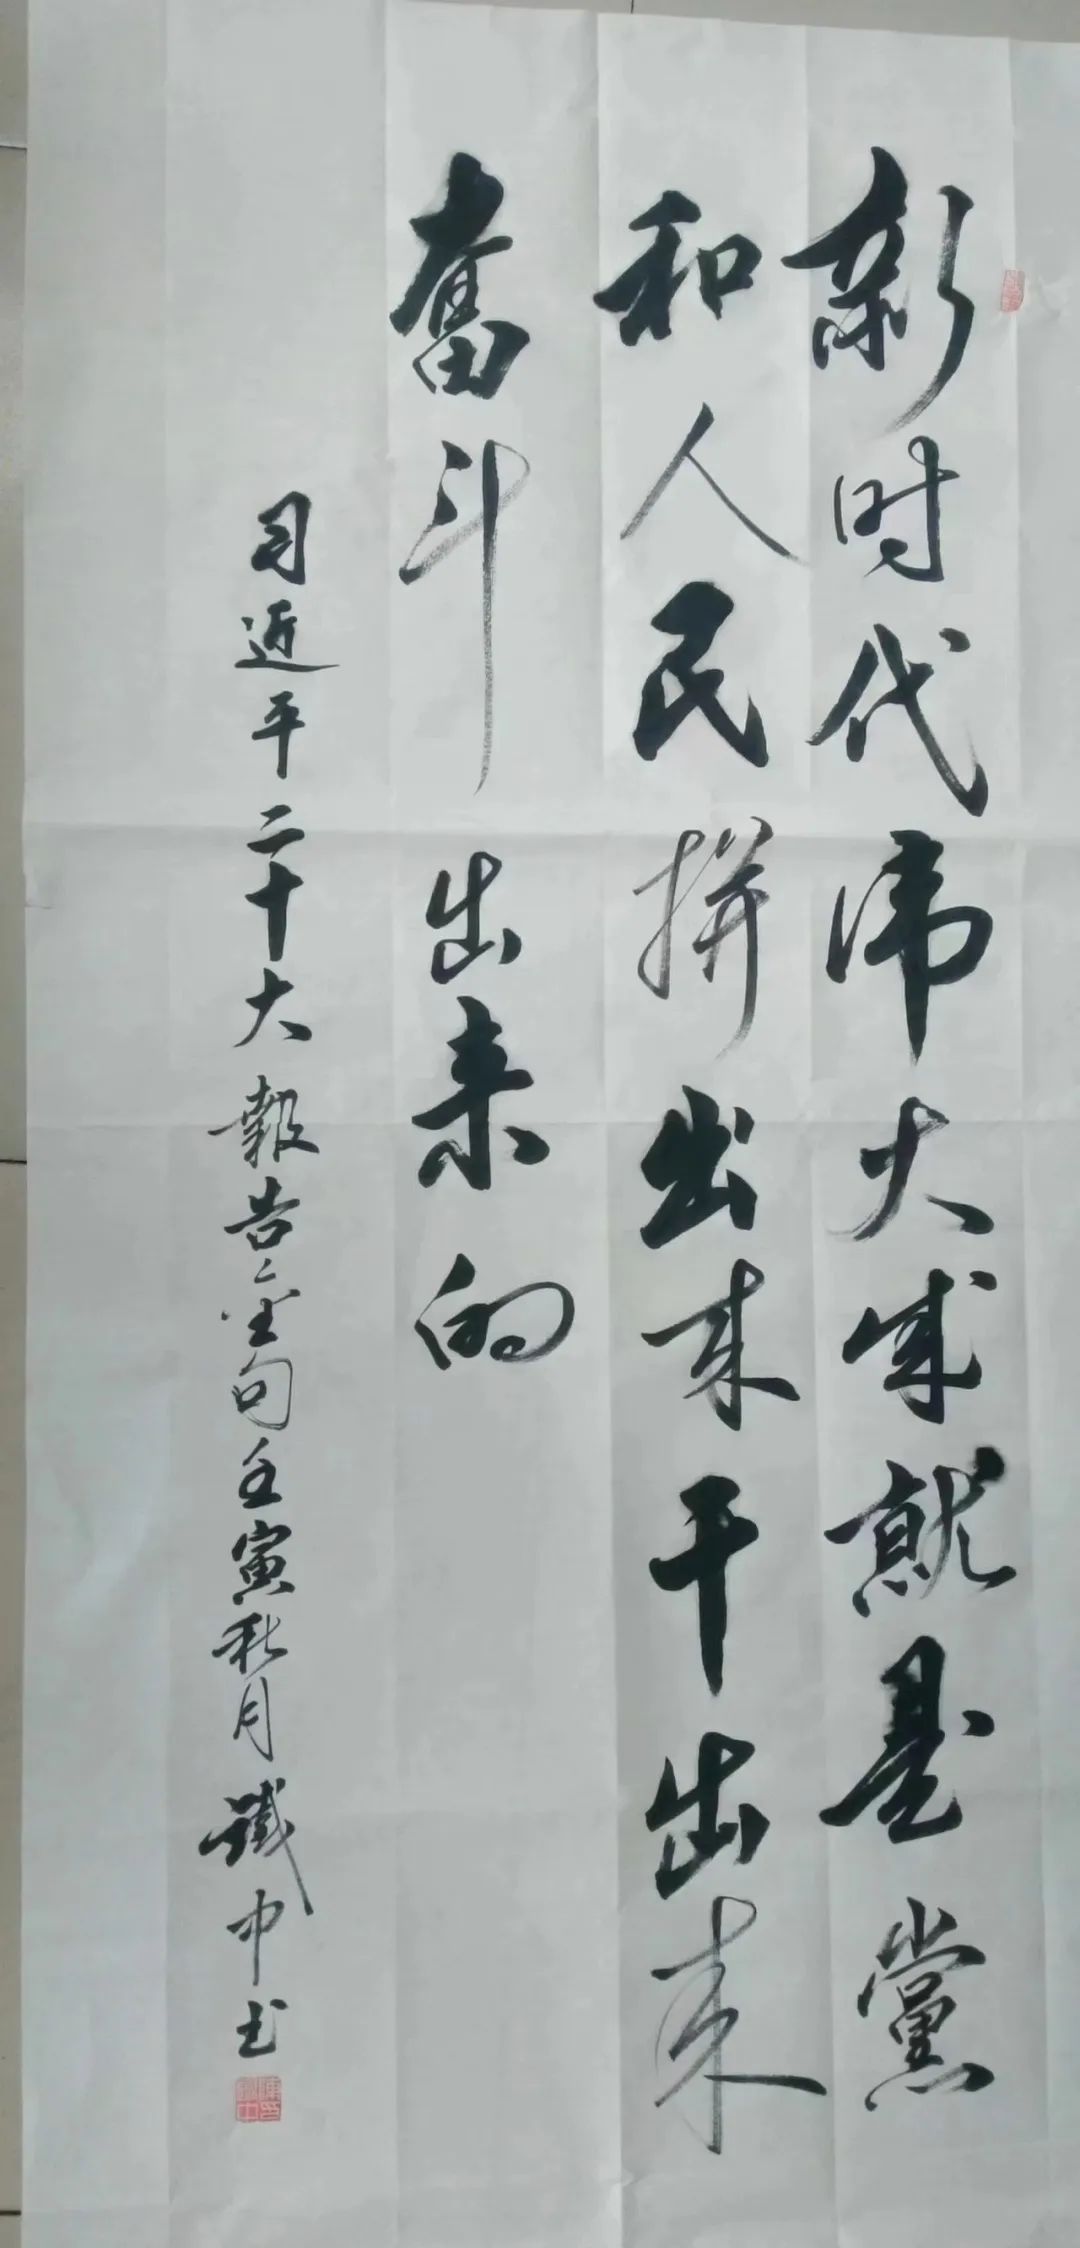 新时代伟大成就是黨
和人民拼出来干出来
奋斗出来的
习近平二十大報告金句壬寅秋月鐵中书